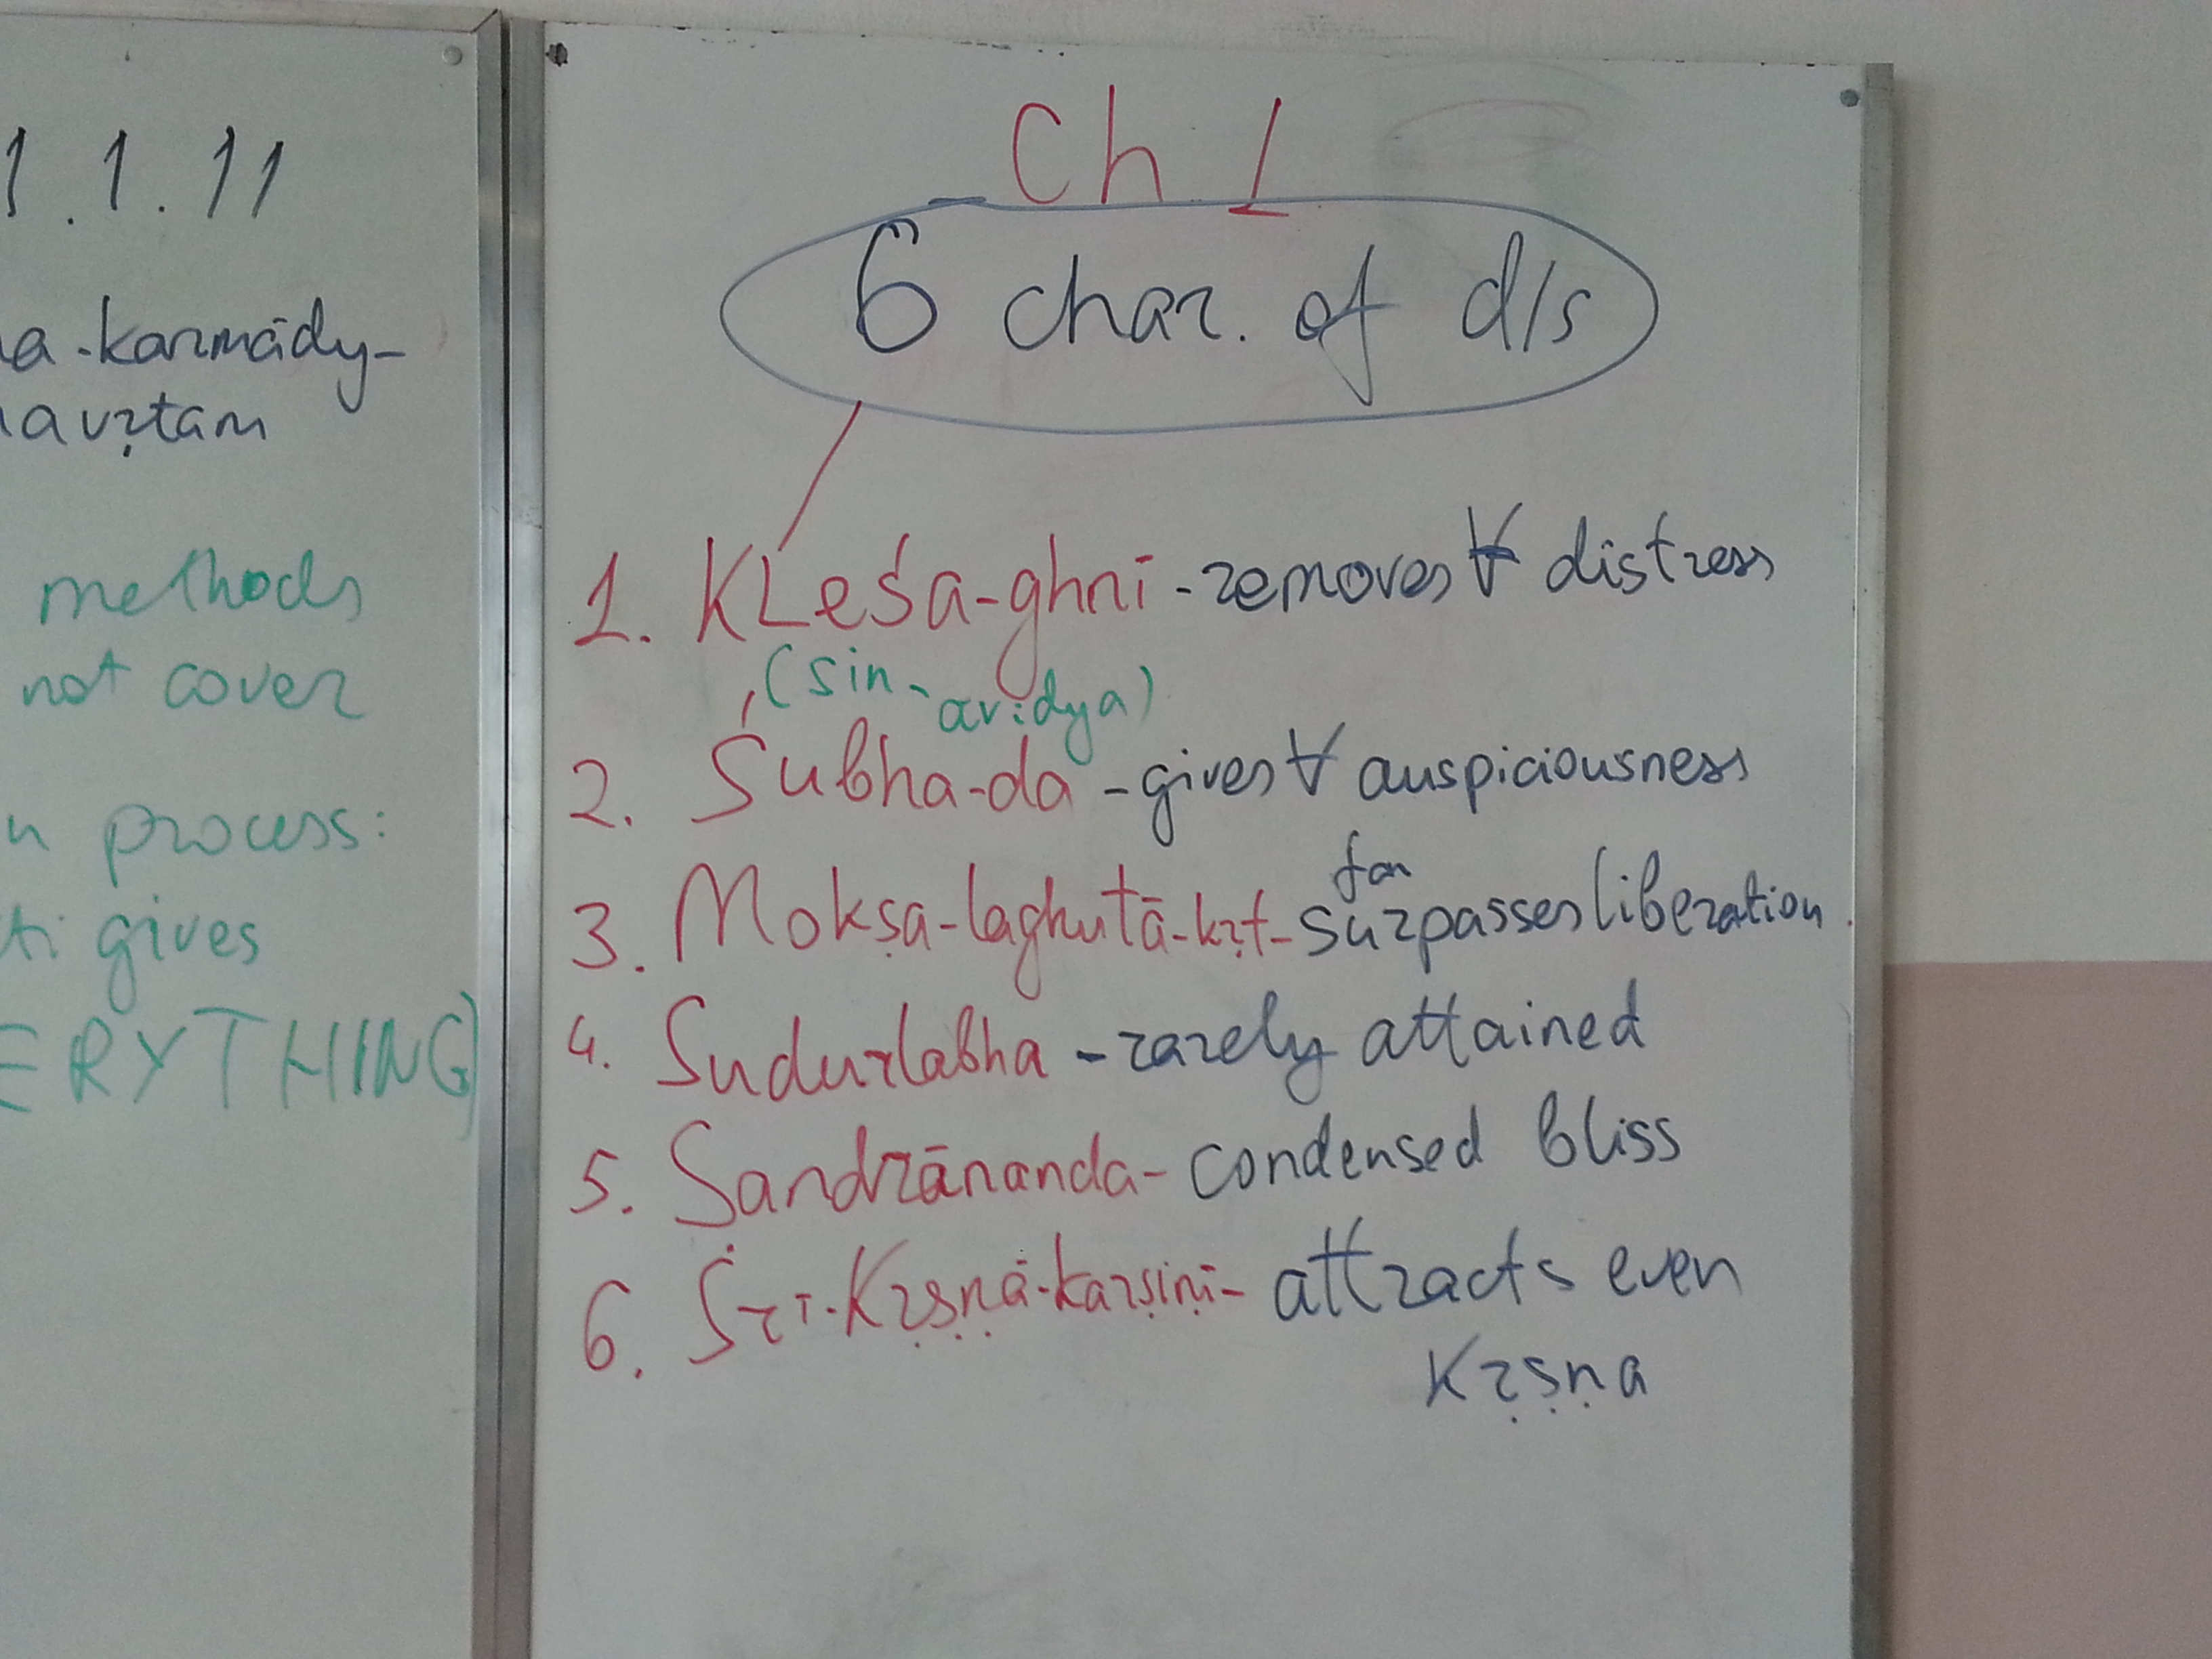 1.1.11
a-karmādy-
avṛtam
methods
not cover
process:
gives
ERYTHING)
Ch 1
6 char. of d/s
1. KLeśa-ghnī - removes ∀ distress
(sin - avidya)
2. Śubha-da - gives ∀ auspiciousness
far
3. Mokṣa-laghutā-kṛt - surpasses liberation
4. Sudurlabha - rarely attained
5. Sandrānanda - condensed bliss
6. Śrī-Kṛṣṇā-karṣiṇī - attracts even
Kṛṣṇa